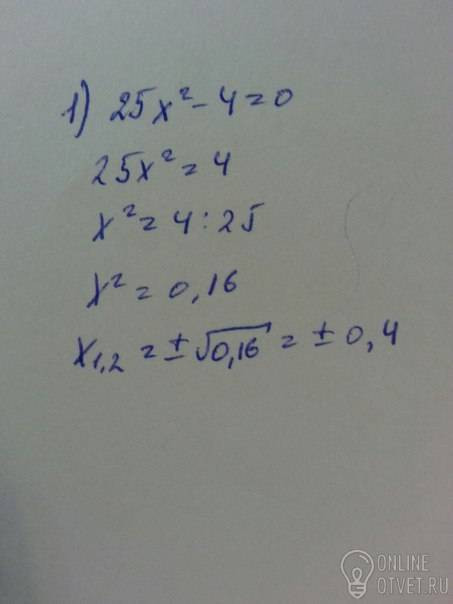 1) 25x² - 4 = 0
25x² = 4
x² = 4 : 25
x² = 0,16
x₁,₂ = ± √0,16 = ± 0,4
ONLINE
OTVET.RU